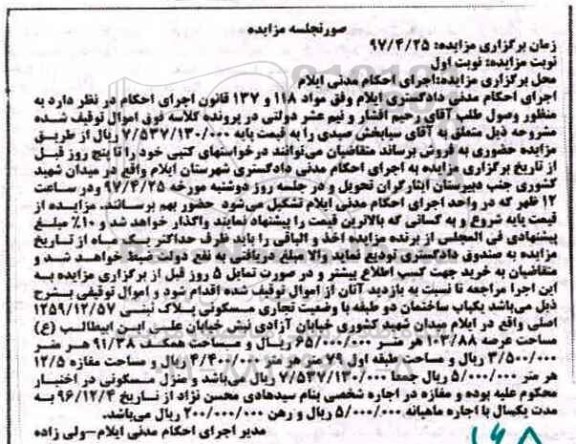 صورتجلسه مزایده
زمان برگزاری مزایده: ۹۷/۴/۲۵
نوبت مزایده: نوبت اول
محل برگزاری مزایده:اجرای احکام مدنی ایلام
اجرای احکام مدنی دادگستری ایلام وفق مواد ۱۱۸ و ۱۳۷ قانون اجرای احکام در نظر دارد به
منظور وصول طلب آقای رحیم افشار و نیم عشر دولتی در پرونده کلاسه فوق اموال توقیف شده
مشروحه ذیل متعلق به آقای سیابخش صیدی را به قیمت پایه ۷/۵۳۷/۱۳۰/۰۰۰ ریال از طریق
مزایده حضوری به فروش برساند متقاضیان می‌توانند درخواستهای کتبی خود را تا پنج روز قبل
از تاریخ برگزاری مزایده به اجرای احکام مدنی دادگستری شهرستان ایلام واقع در میدان شهید
کشوری جنب دبیرستان ایثارگران تحویل و در جلسه روز دوشنبه مورخه ۹۷/۴/۲۵ ودر ساعت
۱۲ ظهر که در واحد اجرای احکام مدنی ایلام تشکیل می‌شود حضور بهم برسانند. مزایده از
قیمت پایه شروع و به کسانی که بالاترین قیمت را پیشنهاد نمایند واگذار خواهد شد و ۱۰٪ مبلغ
پیشنهادی فی المجلس از برنده مزایده اخذ و الباقی را باید ظرف حداکثر یک ماه از تاریخ
مزایده به صندوق دادگستری تودیع نماید والا مبلغ دریافتی به نفع دولت ضبط خواهد شد و
متقاضیان به خرید جهت کسب اطلاع بیشتر و در صورت تمایل ۵ روز قبل از برگزاری مزایده به
این اجرا مراجعه تا نسبت به بازدید آنان از اموال توقیف شده اقدام شود و اموال توقیفی بشرح
ذیل می‌باشد یکباب ساختمان دو طبقه با وضعیت تجاری مسکونی پلاک ثبتی ۱۲۵۹/۱۲/۵۷
اصلی واقع در ایلام میدان شهید کشوری خیابان آزادی نبش خیابان علی ابن ابیطالب (ع)
مساحت عرصه ۱۰۳/۸۸ هر متر ۶۵/۰۰۰/۰۰۰ ریال و مساحت همکف ۹۱/۳۸ هر متر
۳/۵۰۰/۰۰۰ ریال و مساحت طبقه اول ۷۹ متر هر متر ۴/۴۰۰/۰۰۰ ریال و مساحت مغازه ۱۲/۵
هر متر ۵/۰۰۰/۰۰۰ ریال جمعا ۷/۵۳۷/۱۳۰/۰۰۰ ریال می‌باشد و منزل مسکونی در اختیار
محکوم علیه بوده و مغازه در اجاره شخصی بنام سیدهادی محسن نژاد از تاریخ ۹۶/۱۲/۴ به
مدت یکسال با اجاره ماهیانه ۵/۰۰۰/۰۰۰ ریال و رهن ۲۰۰/۰۰۰/۰۰۰ ریال می‌باشد.
مدیر اجرای احکام مدنی ایلام–ولی زاده